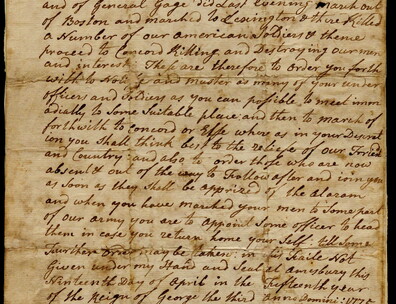 and of General Gage Did Last Evening march out
of Boston and marched to Lexington & there Killed
a Number of our American Soldiers & thence
proceed to Concord Killing and Destroying our men
and interest: These are therefore to Order you forth
with to Notifye and muster as many of your under
officers and Soldiers as you can possible to meet imm
adially to Some Suitable place: and then to march of
forthwith to Concord or Else where as in your Discret
ion you Shall think best to the reliefe of our Friend
and Country: and also to order those who are now
absent & out of the way to Follow after and ioin you
as Soon as they Shall be apprized of the Alaram
and when you have marched your men to Some part
of our army you are to appoint Some officer to head
them in case you return home your Self: till Some
Further Order may be taken: in Faile Not
Given under my Hand and Seal at Amesbury this
Ninteenth Day of April in the Fifteenth year
of the Reign of George the third Anno Domini: 1775